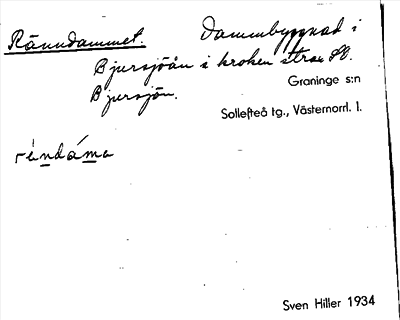 Ränndammet. Dammbyggnad i
Bjursjöån i kroken strax SO.
Bjursjön.
Graninge s:n
Sollefteå tg., Västernorrl. l.
rèndáma
Sven Hiller 1934